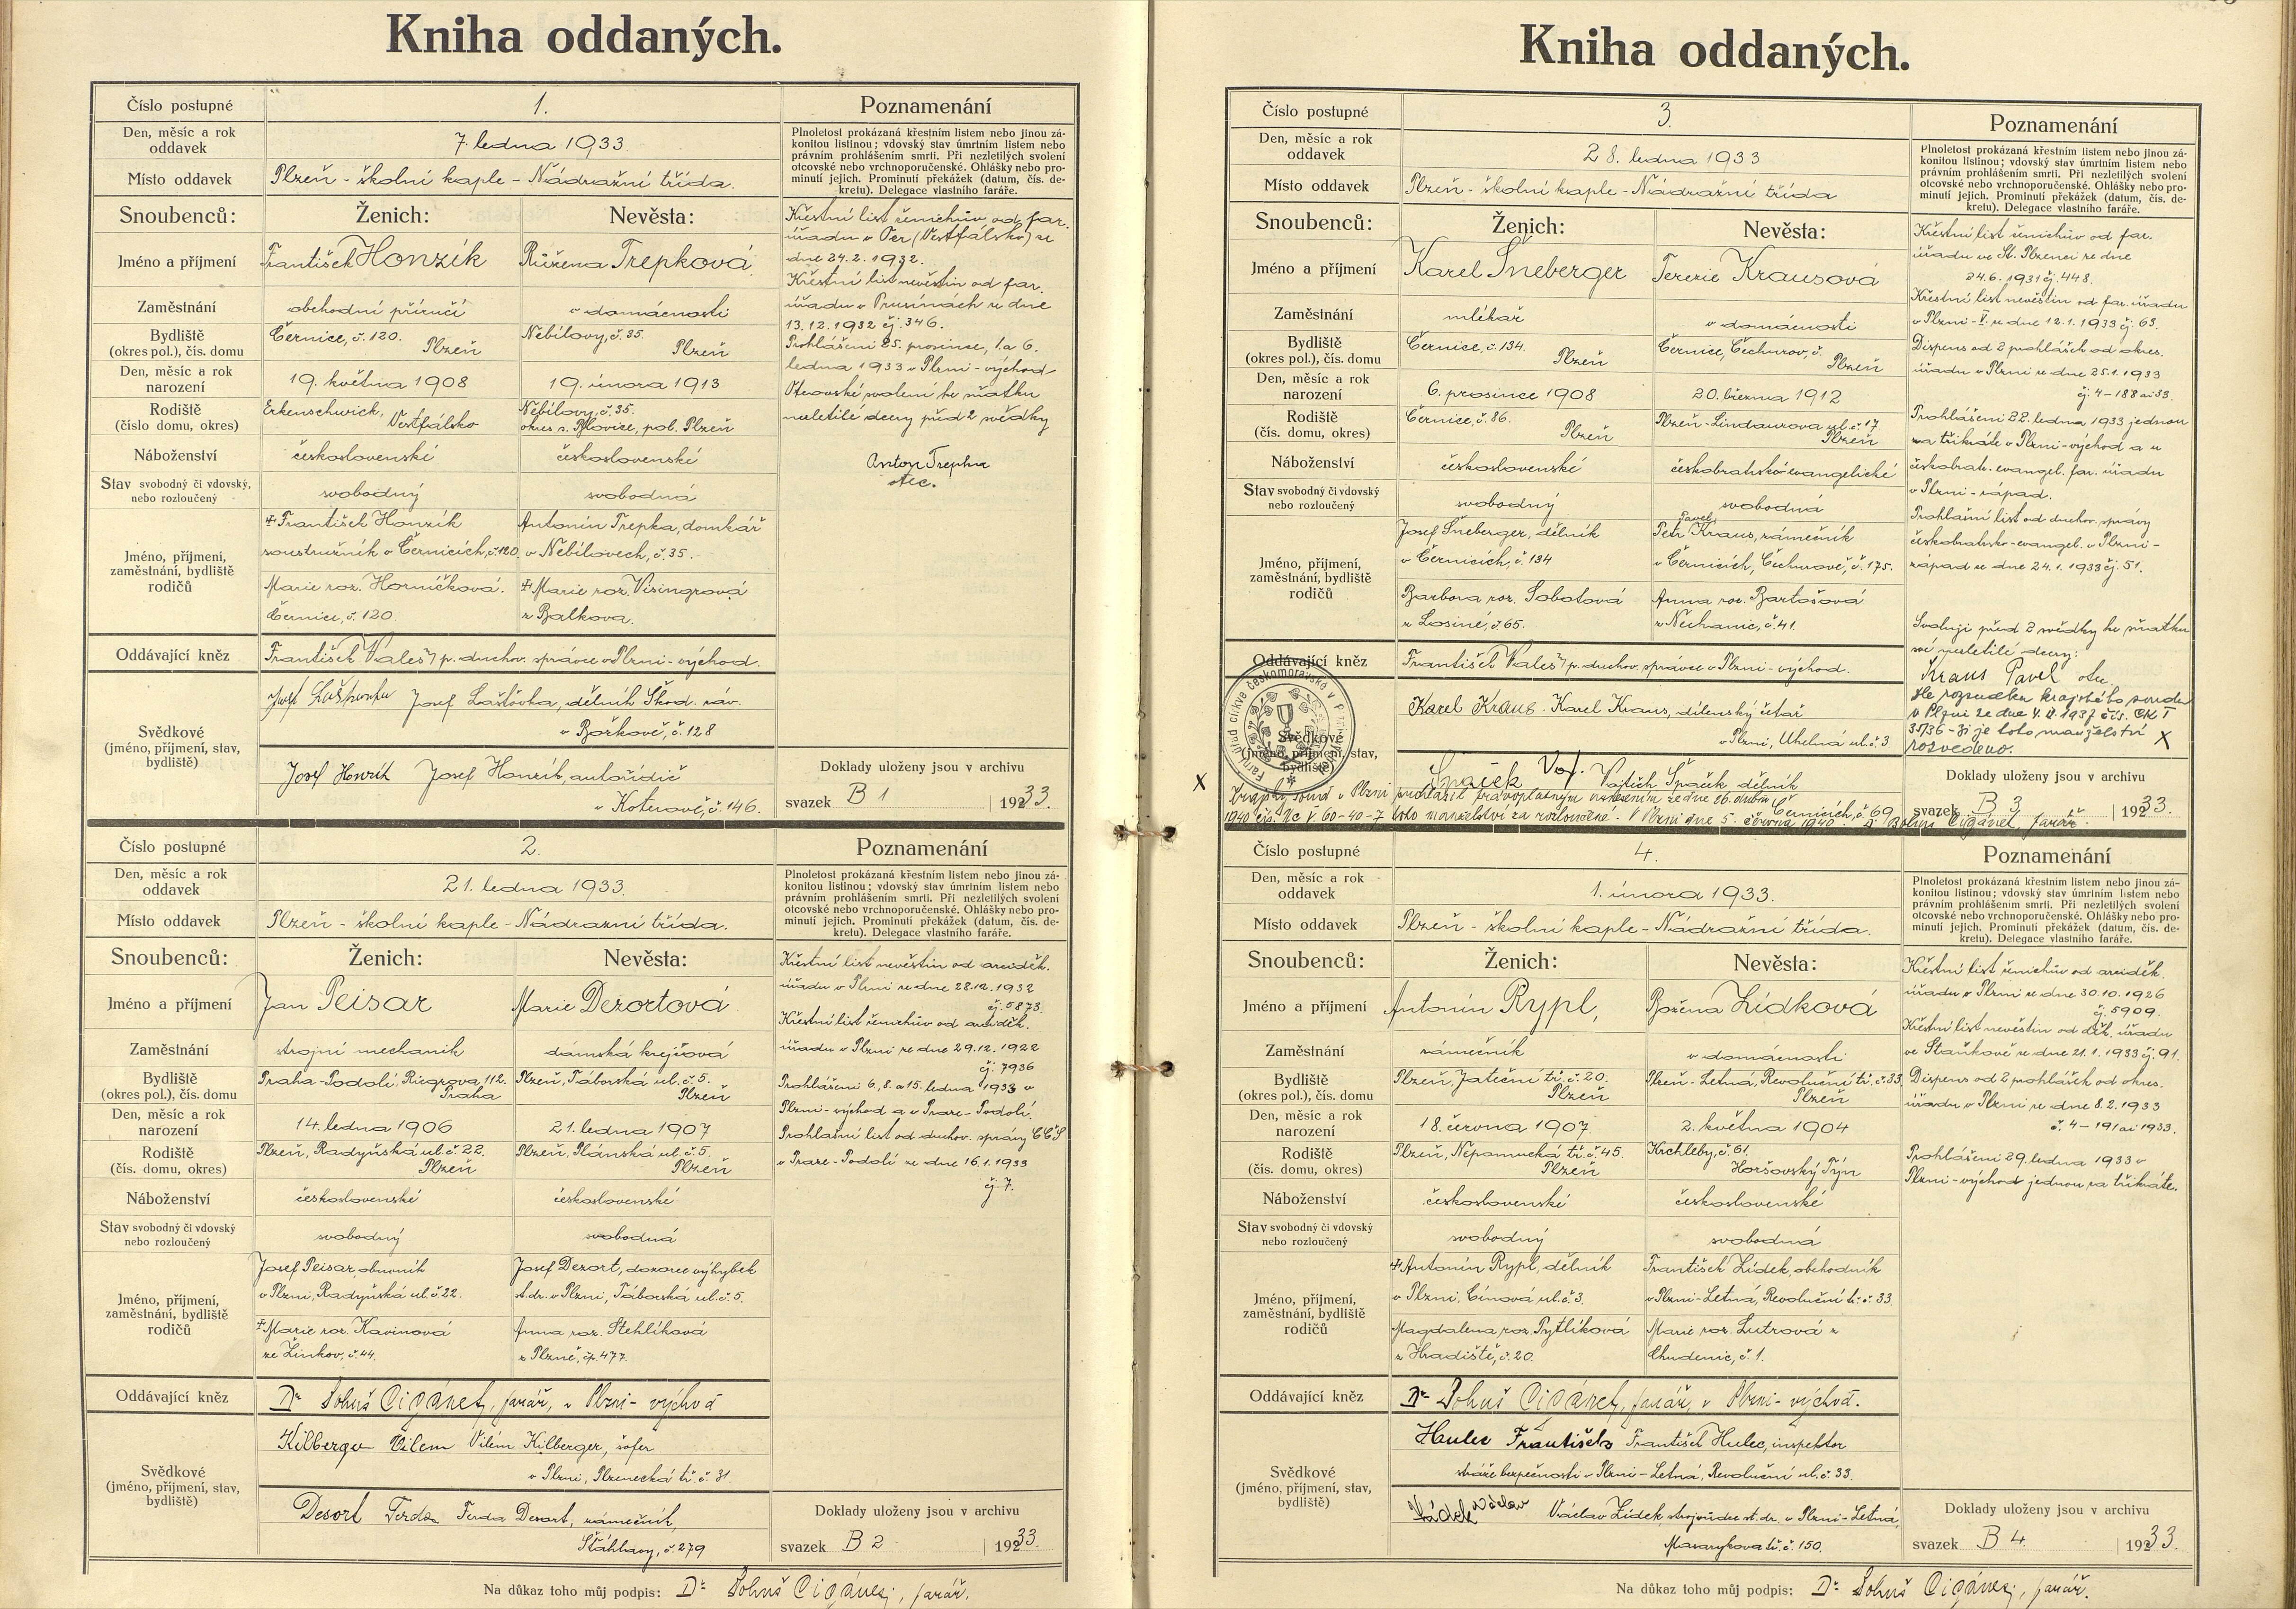 Kniha oddaných.
Číslo postupné 1. Poznamenání
Den, měsíc a rok oddavek 7. ledna 1933.
Plnoletost prokázaná křestním listem nebo jinou zá-
konitou listinou; vdovský stav úmrtním listem nebo
právním prohlášením smrti. Při nezletilých svolení
otcovské nebo vrchnoporučenské. Ohlášky nebo pro-
minutí jejich. Prominutí překážek (datum, čís. de-
kretu). Delegace vlastního faráře.
Místo oddavek Plzeň - školní kaple - Nádražní třída.
Snoubenců: Ženich: Nevěsta:
Jméno a příjmení František Honzík Růžena Trepková
Zaměstnání obchodní příručí v domácnosti
Bydliště (okres pol.), čís. domu Černice, č. 120. Plzeň Nebílovy, č. 35 Plzeň
Den, měsíc a rok narození 19. května 1908 19. února 1913
Rodiště (číslo domu, okres) Erkenschwick, Vestfálsko Nebílovy, č. 35. okres s. Blovice, pol. Plzeň
Náboženství československé československé
Stav svobodný či vdovský, nebo rozloučený svobodný svobodná
Jméno, příjmení, zaměstnání, bydliště rodičů
František Honzík
soustružník v Černicích, č. 120
Marie roz. Horníčková.
Černice, č. 120.
Antonín Trepka, domkář
v Nebílovech, č. 35.
Marie roz. Visingrová
z Balkova.
Křestní list ženichův od far.
úřadu v Oer (Vestfálsko) ze
dne 24. 2. 1932.
Křestní list nevěstin od far.
úřadu v Prusínách ze dne
13. 12. 1932 čj. 346.
Prohlášeni 25. prosince, 1. a 6.
ledna 1933 v Plzni - východ
Otcovské svolení ke sňatku
nezletilé dcery před 2 svědky
Anton Trepka
otec.
Oddávající kněz František Valeš, p. duchov. správce v Plzni - východ.
Svědkové (jméno, příjmení, stav, bydliště)
Josef Laštovka, dělník Škod. záv.
v Božkově, č. 128
Josef Honzík Josef Honzík, autořidič
v Koterově, č. 146.
Doklady uloženy jsou v archivu
svazek B 1 1933.
Číslo postupné 2. Poznamenání
Den, měsíc a rok oddavek 21. ledna 1933.
Plnoletost prokázaná křestním listem nebo jinou zá-
konitou listinou; vdovský stav úmrtním listem nebo
právním prohlášením smrti. Při nezletilých svolení
otcovské nebo vrchnoporučenské. Ohlášky nebo pro-
minutí jejich. Prominutí překážek (datum, čís. de-
kretu). Delegace vlastního faráře.
Místo oddavek Plzeň - školní kaple - Nádražní třída.
Snoubenců: Ženich: Nevěsta:
Jméno a příjmení Jan Peisar Marie Dezortová
Zaměstnání strojní mechanik dámská krejčová
Bydliště (okres pol.), čís. domu Praha-Podolí, Riegrova 112. Praha Plzeň, Táborská ul. č. 5. Plzeň
Den, měsíc a rok narození 14. ledna 1906 21. ledna 1907
Rodiště (čís. domu, okres) Plzeň, Radyňská ul. č. 22. Plzeň Plzeň, Plánská ul. č. 5. Plzeň
Náboženství československé československé
Stav svobodný či vdovský nebo rozloučený svobodný svobodná
Jméno, příjmení, zaměstnání, bydliště rodičů
Josef Peisar, obuvník
v Plzni, Radyňská ul. č. 22.
Marie roz. Kavinová
ze Žinkov, č. 44.
Josef Dezort, dozorce výhybek
st. dr. v Plzni, Táborská ul. č. 5.
Anna roz. Stehlíková
z Plzně, čp. 477.
Křestní list nevěstin od arciděk.
úřadu v Plzni ze dne 28. 12. 1932
čj. 5873.
Křestní list ženichův od arciděk.
úřadu v Plzni ze dne 29. 12. 1922
čj. 7936
Prohlášeni 6, 8. a 15. ledna 1933 v
Plzni - východ a v Praze - Podolí.
Prohlašní list od duchov. správy CČS
v Praze - Podolí ze dne 16. 1. 1933
čj. 7.
Oddávající kněz Dr Bohuš Cigánek, farář, v Plzni - východ
Svědkové (jméno, příjmení, stav, bydliště)
Kilberger Vilem Vilém Kilberger, šofer
v Plzni, Plzenecká tř. č. 31.
Desort Ferda Ferda Desort, zámečník,
Šťáhlavy, č. 279
Doklady uloženy jsou v archivu
svazek B 2 1933.
Na důkaz toho můj podpis: Dr Bohuš Cigánek, farář.
Kniha oddaných.
Číslo postupné 3. Poznamenání
Den, měsíc a rok oddavek 28. ledna 1933
Plnoletost prokázaná křestním listem nebo jinou zá-
konitou listinou; vdovský stav úmrtním listem nebo
právním prohlášením smrti. Při nezletilých svolení
otcovské nebo vrchnoporučenské. Ohlášky nebo pro-
minutí jejich. Prominutí překážek (datum, čís. de-
kretu). Delegace vlastního faráře.
Místo oddavek Plzeň - školní kaple - Nádražní třída
Snoubenců: Ženich: Nevěsta:
Jméno a příjmení Karel Šneberger Terezie Krausová
Zaměstnání mlékař v domácnosti
Bydliště (okres pol.), čís. domu Černice, č. 134. Plzeň Černice, Čechurov, č. Plzeň
Den, měsíc a rok narození 6. prosince 1908 20. března 1912
Rodiště (čís. domu, okres) Černice, č. 86. Plzeň Plzeň - Lindaurova ul. č. 17 Plzeň
Náboženství československé českobratrsko-evangelické
Stav svobodný či vdovský nebo rozloučený svobodný svobodná
Jméno, příjmení, zaměstnání, bydliště rodičů
Josef Šneberger, dělník
v Černicích, č. 134
Barbora roz. Sobotová
z Losiné, č. 65.
Pavel
Petr Kraus, zámečník
v Černicích, Čechurově, č. 175.
Anna roz. Bartošová
z Nechanic, č. 41.
Křestní list ženichův od far.
úřadu ve St. Plzenci ze dne
24. 6. 1931 čj. 448.
Křestní list nevěstin od far. úřadu
v Plzni - V. ze dne 12. 1. 1933 čj. 63.
Dispens od 2 prohlášek od okres.
úřadu v Plzni ze dne 25. 1. 1933
čj. 4 - 188 ai 33.
Prohlášeni 22. ledna 1933 jednou
za třikráte v Plzni - východ a u
českobratr. evangel. far. úřadu
v Plzni - západ.
Prohlašní list od duchov. správy
českobratrsko-evangel. v Plzni -
západ ze dne 24. 1. 1933 čj. 51.
Svoluji před 2 svědky ke sňatku
své nezletilé dcery:
Kraus Pavel otec.
Dle rozsudku krajského soudu
v Plzni ze dne 4. II 1937 čís. CK I
35/36 - je toto manželství X
rozvedeno.
Oddávající kněz František Valeš, p. duchov. správce v Plzni - východ.
Svědkové (jméno, příjmení, stav, bydliště)
Karel Kraus. Karel Kraus, dílenský četař
v Plzni, Uhelná ul. č. 3
Špaček Voj. Vojtěch Špaček dělník
Černicích, č. 69
X Krajský soud v Plzni prohlásil pravoplatným usnesením ze dne 26. dubna
1940 čís. Nc V 60-40-7 toto manželství za rozloučené. V Plzni dne 5. června 1940. Dr Bohuš Cigánek, farář.
Doklady uloženy jsou v archivu
svazek B 3 1933.
Číslo postupné 4. Poznamenání
Den, měsíc a rok oddavek 1. února 1933.
Plnoletost prokázaná křestním listem nebo jinou zá-
konitou listinou; vdovský stav úmrtním listem nebo
právním prohlášením smrti. Při nezletilých svolení
otcovské nebo vrchnoporučenské. Ohlášky nebo pro-
minutí jejich. Prominutí překážek (datum, čís. de-
kretu). Delegace vlastního faráře.
Místo oddavek Plzeň - školní kaple - Nádražní třída.
Snoubenců: Ženich: Nevěsta:
Jméno a příjmení Antonín Rypl, Božena Zídková
Zaměstnání zámečník v domácnosti
Bydliště (okres pol.), čís. domu Plzeň, Jateční tř. č. 20. Plzeň Plzeň - Letná, Revoluční tř. č. 33. Plzeň
Den, měsíc a rok narození 18. června 1907. 2. května 1904
Rodiště (čís. domu, okres) Plzeň, Nepomucká tř. č. 45. Plzeň Krchleby, č. 61. Horšovský Týn
Náboženství československé československé
Stav svobodný či vdovský nebo rozloučený svobodný svobodná
Jméno, příjmení, zaměstnání, bydliště rodičů
Antonín Rypl, dělník
v Plzni, Cínová ul. č. 3.
Magdalena roz. Pytlíková
z Hradiště, č. 20.
František Zídek, obchodník
v Plzni - Letná, Revoluční tř. č. 33.
Marie roz. Lutrová z
Chudenic, č. 1.
Křestní list ženichův od arciděk.
úřadu v Plzni ze dne 30. 10. 1926
čj. 5909.
Křestní list nevěstin od děk. úřadu
ve Staňkově ze dne 21. 1. 1933 čj. 91.
Dispens od 2 prohlášek od okres.
úřadu v Plzni ze dne 8. 2. 1933
č. 4 - 191 ai 1933.
Prohlášeni 29. ledna 1933 v
Plzni - východ jednou za třikráte.
Oddávající kněz Dr Bohuš Cigánek, farář, v Plzni - východ.
Svědkové (jméno, příjmení, stav, bydliště)
Hulec František František Hulec, inspektor
stráže bezpečnosti v Plzni - Letná, Revoluční ul. č. 33.
Zídek Václav Václav Zídek, strojvůdce st. dr. v Plzni - Letná,
Masarykova tř. č. 150.
Doklady uloženy jsou v archivu
svazek B 4. 1933.
Na důkaz toho můj podpis: Dr Bohuš Cigánek, farář.